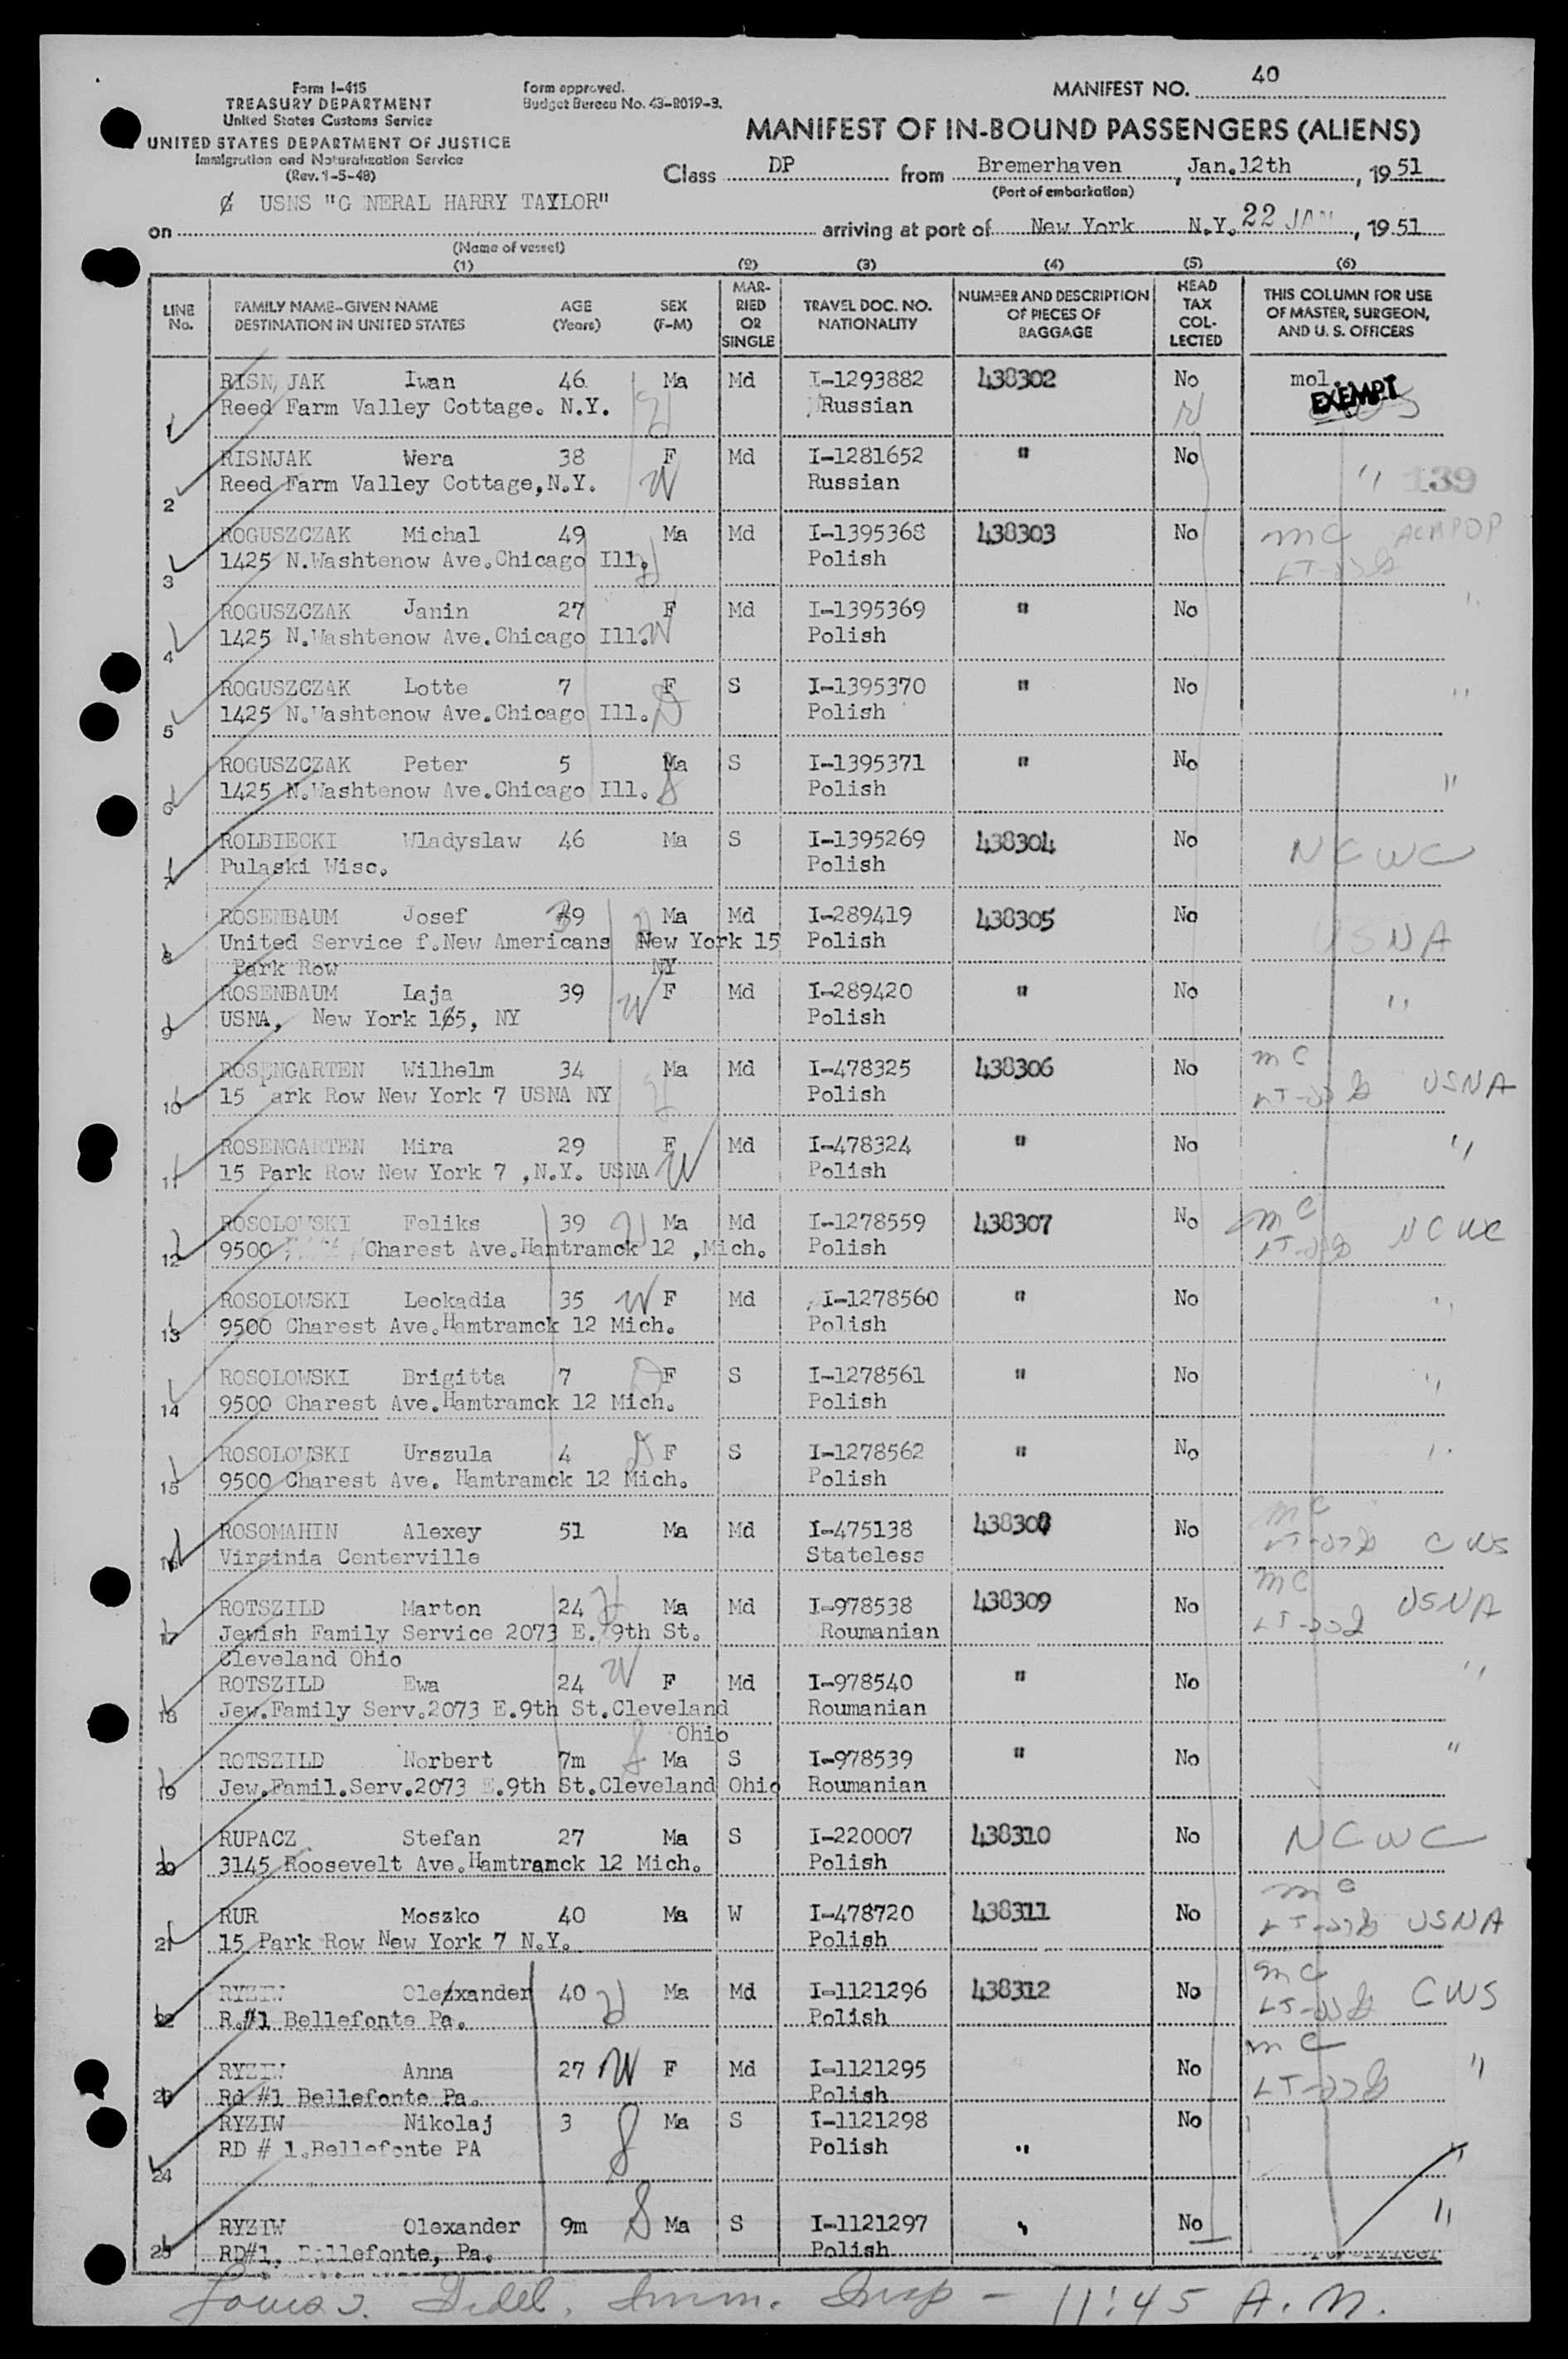 Form I-415
TREASURY DEPARTMENT
United States Customs Service
UNITED STATES DEPARTMENT OF JUSTICE
Immigration and Naturalization Service
(Rev. 1-5-48)
Form approved.
Budget Bureau No. 43-R019-3.
MANIFEST NO. 40
MANIFEST OF IN-BOUND PASSENGERS (ALIENS)
Class DP from Bremerhaven, Jan.12th, 1951
(Port of embarkation)
on USNS "G NERAL HARRY TAYLOR" arriving at port of New York N.Y. 22 JAN, 1951
(Name of vessel)
(1) (2) (3) (4) (5) (6)
LINE No. FAMILY NAME-GIVEN NAME DESTINATION IN UNITED STATES AGE (Years) SEX (F-M) MARRIED OR SINGLE TRAVEL DOC. NO. NATIONALITY NUMBER AND DESCRIPTION OF PIECES OF BAGGAGE HEAD TAX COLLECTED THIS COLUMN FOR USE OF MASTER, SURGEON, AND U. S. OFFICERS
1 RISN JAK Iwan 46 Ma Md I-1293882 438302 No mol. EXEMPT
Reed Farm Valley Cottage. N.Y. Russian
2 RISNJAK Wera 38 F Md I-1281652 " No " 139
Reed Farm Valley Cottage,N.Y. W Russian
3 ROGUSZCZAK Michal 49 Ma Md I-1395368 438303 No mc
1425 N.Washtenow Ave.Chicago Ill. Polish
4 ROGUSZCZAK Janin 27 F Md I-1395369 " No "
1425 N.Washtenow Ave.Chicago Ill. W Polish
5 ROGUSZCZAK Lotte 7 F S I-1395370 " No "
1425 N.Washtenow Ave.Chicago Ill. D Polish
6 ROGUSZCZAK Peter 5 Ma S I-1395371 " No "
1425 N.Washtenow Ave.Chicago Ill. S Polish
7 ROLBIECKI Wladyslaw 46 Ma S I-1395269 438304 No NCWC
Pulaski Wisc. Polish
8 ROSENBAUM Josef 39 Ma Md I-289419 438305 No USNA
United Service f.New Americans New York 15 Polish
Park Row NY
9 ROSENBAUM Laja 39 W F Md I-289420 " No "
USNA, New York 15, NY Polish
10 ROSENGARTEN Wilhelm 34 Ma Md I-478325 438306 No mc USNA
15 Park Row New York 7 USNA NY Polish
11 ROSENGARTEN Mira 29 F Md I-478324 " No "
15 Park Row New York 7 ,N.Y. USNA W Polish
12 ROSOLOWSKI Feliks 39 Ma Md I-1278559 438307 No mc NCWC
9500 Charest Ave.Hamtramck 12 ,Mich. Polish
13 ROSOLOWSKI Leokadia 35 W F Md I-1278560 " No "
9500 Charest Ave.Hamtramck 12 Mich. Polish
14 ROSOLOWSKI Brigitta 7 D F S I-1278561 " No "
9500 Charest Ave.Hamtramck 12 Mich. Polish
15 ROSOLOWSKI Urszula 4 D F S I-1278562 " No "
9500 Charest Ave. Hamtramck 12 Mich. Polish
16 ROSOMAHIN Alexey 51 Ma Md I-475138 438308 No mc CWS
Virginia Centerville Stateless
17 ROTSZILD Marton 24 Ma Md I-978538 438309 No mc USNA
Jewish Family Service 2073 E. 9th St. Roumanian
Cleveland Ohio
18 ROTSZILD Ewa 24 W F Md I-978540 " No "
Jew.Family Serv.2073 E.9th St.Cleveland Roumanian
Ohio
19 ROTSZILD Norbert 7m S Ma S I-978539 " No "
Jew.Famil.Serv.2073 E.9th St.Cleveland Ohio Roumanian
20 RUPACZ Stefan 27 Ma S I-220007 438310 No NCWC
3145 Roosevelt Ave.Hamtramck 12 Mich. Polish
21 RUR Moszko 40 Ma W I-478720 438311 No mc USNA
15 Park Row New York 7 N.Y. Polish
22 RYZIW Olexander 40 Ma Md I-1121296 438312 No mc CWS
R.#1 Bellefonte Pa. Polish
23 RYZIW Anna 27 W F Md I-1121295 No mc "
Rd #1 Bellefonte Pa. Polish
24 RYZIW Nikolaj 3 S Ma S I-1121298 No "
RD # 1.Bellefonte PA Polish "
25 RYZIW Olexander 9m S Ma S I-1121297 " No "
RD#1, Bellefonte, Pa. Polish
Imm. Insp - 11:45 A.M.